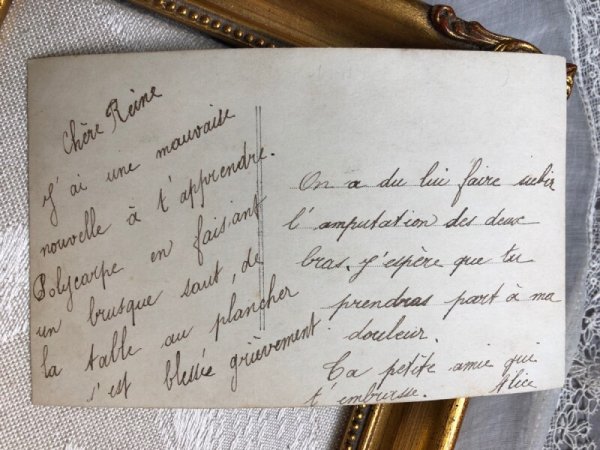 Chère Reine
J'ai une mauvaise
nouvelle à t'apprendre.
Polycarpe en faisant
un brusque saut, de
la table au plancher
s'est blessée grièvement
On a du lui faire subir
l'amputation des deux
bras. J'espère que tu
prendras part à ma
douleur.
Ta petite amie qui
t'embrasse. Alice